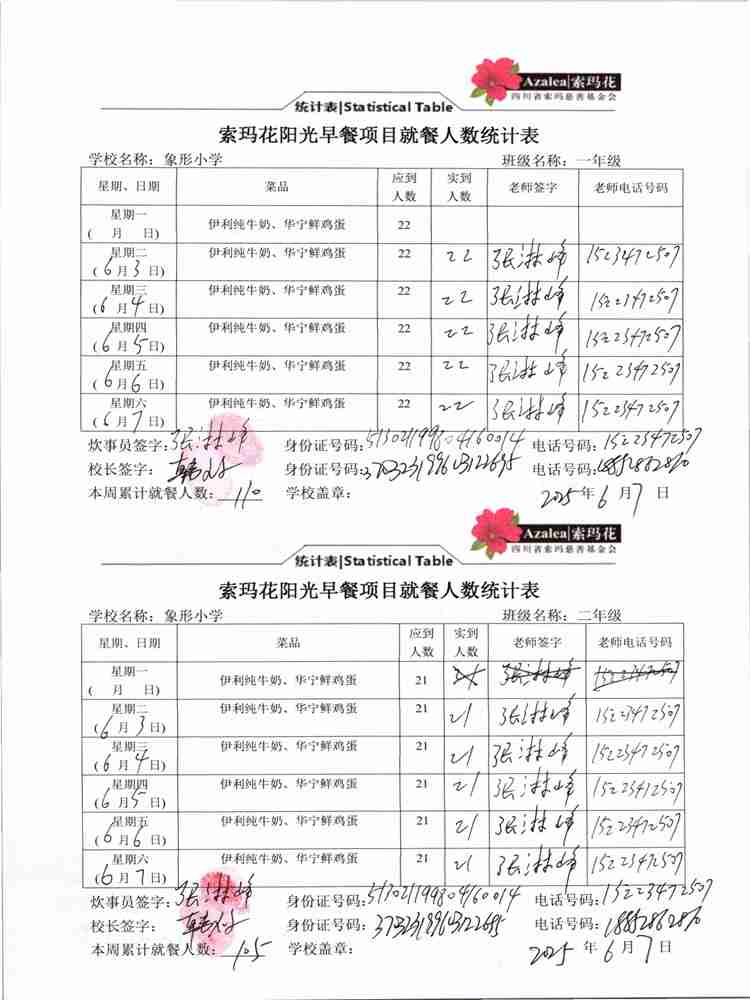 Azalea|索玛花
四川省索玛慈善基金会
统计表|Statistical Table
索玛花阳光早餐项目就餐人数统计表
学校名称：象形小学 班级名称：一年级
星期、日期 菜品 应到人数 实到人数 老师签字 老师电话号码
星期一 ( 月 日) 伊利纯牛奶、华宁鲜鸡蛋 22
星期二 (6月3日) 伊利纯牛奶、华宁鲜鸡蛋 22 22 张淋峰
星期三 (6月4日) 伊利纯牛奶、华宁鲜鸡蛋 22 22 张淋峰
星期四 (6月5日) 伊利纯牛奶、华宁鲜鸡蛋 22 22 张淋峰 15223472507
星期五 (6月6日) 伊利纯牛奶、华宁鲜鸡蛋 22 22 张淋峰 15223472507
星期六 (6月7日) 伊利纯牛奶、华宁鲜鸡蛋 22 22 张淋峰 15223472507
炊事员签字：张淋峰 身份证号码：513021199804160014 电话号码：15223472507
校长签字： 身份证号码： 电话号码：18852862870
本周累计就餐人数：110 学校盖章： 2025年6月7日
Azalea|索玛花
四川省索玛慈善基金会
统计表|Statistical Table
索玛花阳光早餐项目就餐人数统计表
学校名称：象形小学 班级名称：二年级
星期、日期 菜品 应到人数 实到人数 老师签字 老师电话号码
星期一 ( 月 日) 伊利纯牛奶、华宁鲜鸡蛋 21
星期二 (6月3日) 伊利纯牛奶、华宁鲜鸡蛋 21 21 张淋峰 15223472507
星期三 (6月4日) 伊利纯牛奶、华宁鲜鸡蛋 21 21 张淋峰 15223472507
星期四 (6月5日) 伊利纯牛奶、华宁鲜鸡蛋 21 21 张淋峰 15223472507
星期五 (6月6日) 伊利纯牛奶、华宁鲜鸡蛋 21 21 张淋峰 15223472507
星期六 (6月7日) 伊利纯牛奶、华宁鲜鸡蛋 21 21 张淋峰 15223472507
炊事员签字：张淋峰 身份证号码：513021199804160014 电话号码：15223472507
校长签字： 身份证号码： 电话号码：18852862870
本周累计就餐人数：105 学校盖章： 2025年6月7日